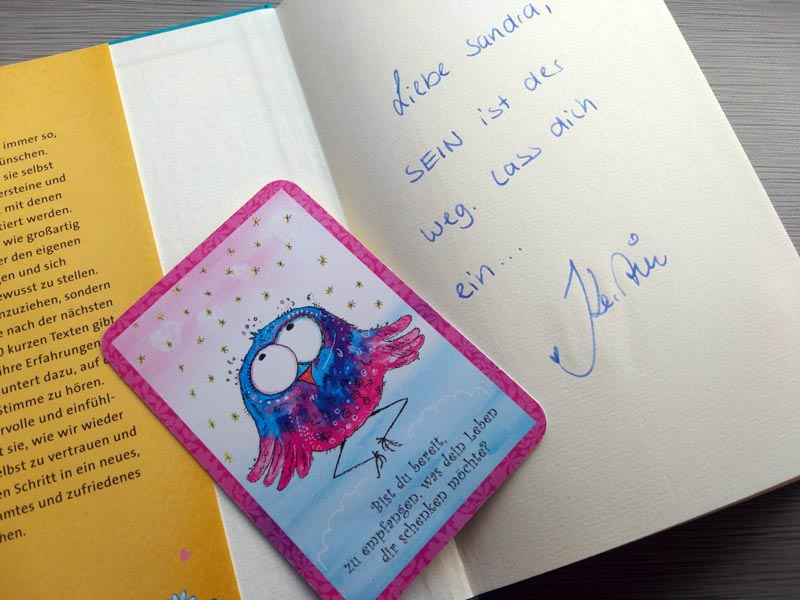 immer so,
ünschen.
sie selbst
ersteine und
mit denen
tiert werden.
wie großartig
er den eigenen
gen und sich
ewusst zu stellen.
nzuziehen, sondern
e nach der nächsten
0 kurzen Texten gibt
ihre Erfahrungen
untert dazu, auf
Stimme zu hören.
ervolle und einfühl-
t sie, wie wir wieder
elbst zu vertrauen und
en Schritt in ein neues,
mmtes und zufriedenes
hen.
Bist du bereit,
zu empfangen, was dein Leben
dir schenken möchte?
Liebe Sandra,
SEIN ist der
Weg. Lass dich
ein...